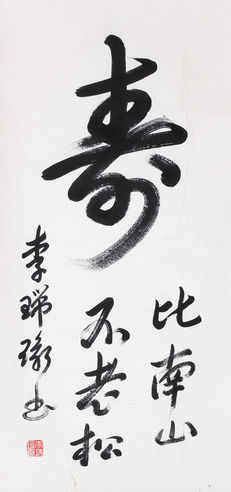 寿
比南山
不老松
李瑞书